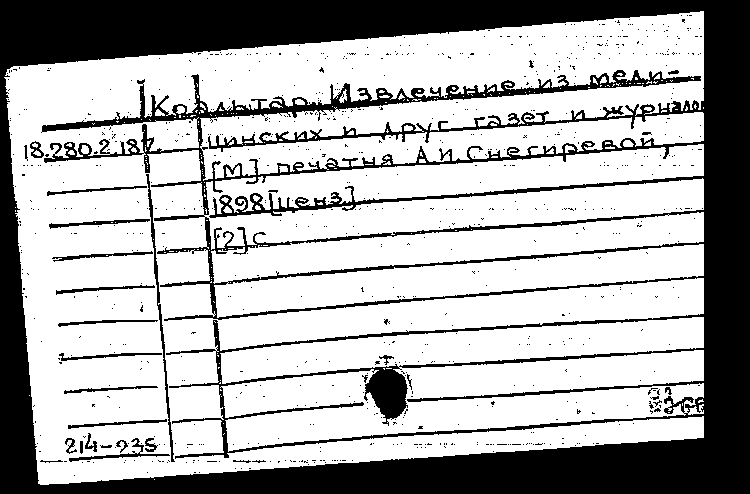 Коальтар. Извлечение из меди-
18.280.2.187. цинских и друг газет и журналов
[М], печатня А.И. Снегиревой,
1898 [ценз]
[2] с
214-235